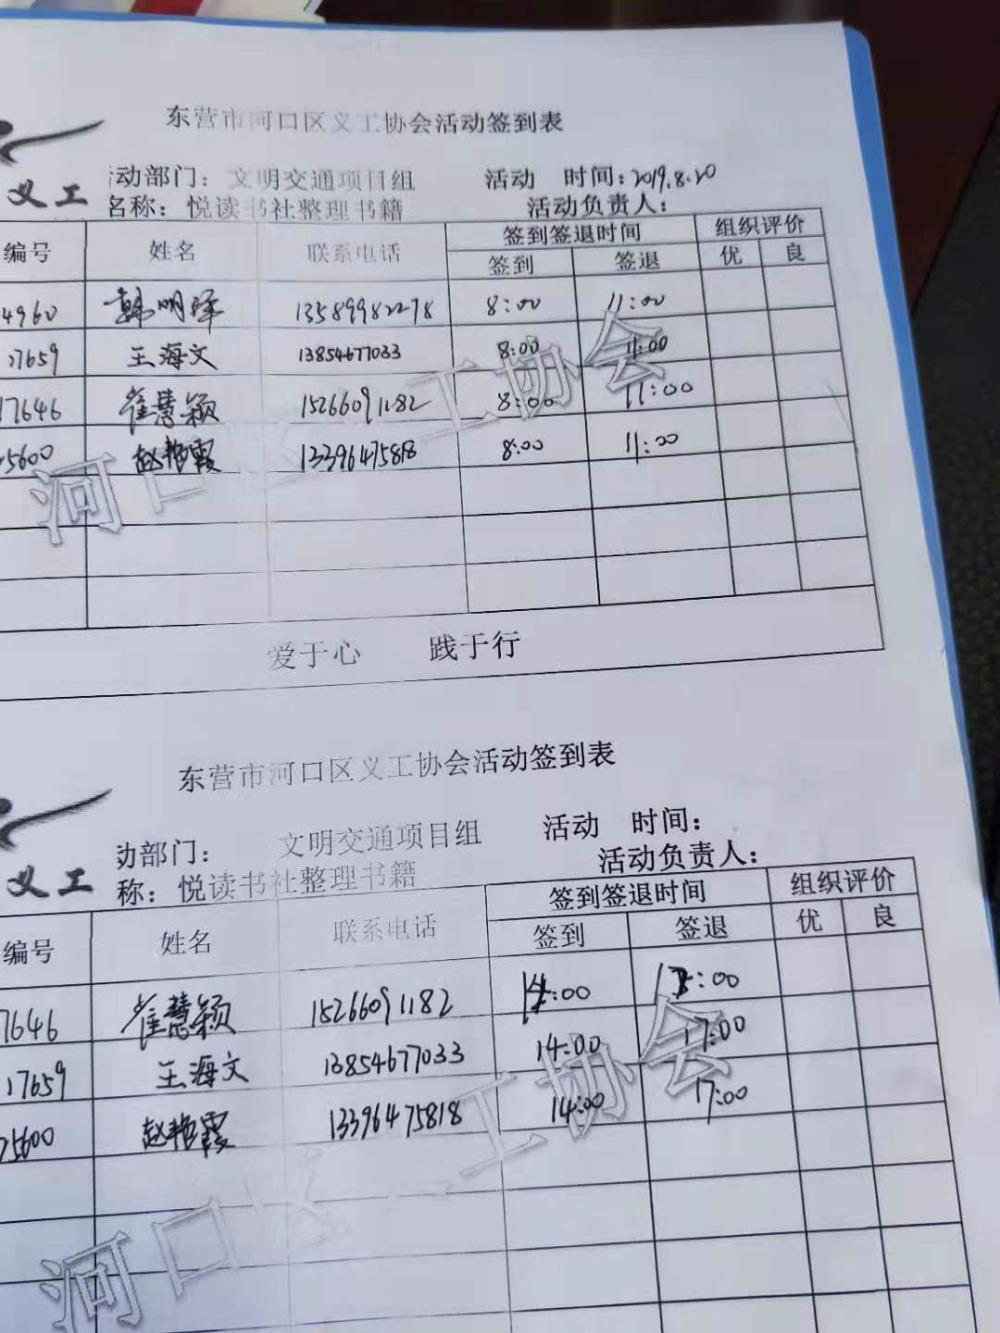 东营市河口区义工协会活动签到表
动部门：文明交通项目组 活动 时间：2019.8.20
义工 名称：悦读书社整理书籍 活动负责人：
编号 姓名 联系电话 签到签退时间 组织评价
签到 签退 优 良
4960 韩明泽 13589982278 8:00 11:00
17659 王海文 13854677033 8:00 11:00
17646 崔慧颖 15266091182 8:00 11:00
25600 赵艳霞 13396475818 8:00 11:00
河口区义工协会
爱于心 践于行
东营市河口区义工协会活动签到表
动部门： 文明交通项目组 活动 时间：
义工 称：悦读书社整理书籍 活动负责人：
编号 姓名 联系电话 签到签退时间 组织评价
签到 签退 优 良
7646 崔慧颖 15266091182 14:00 :00
17659 王海文 13854677033 14:00 17:00
25600 赵艳霞 13396475818 14:00 17:00
河口区义工协会